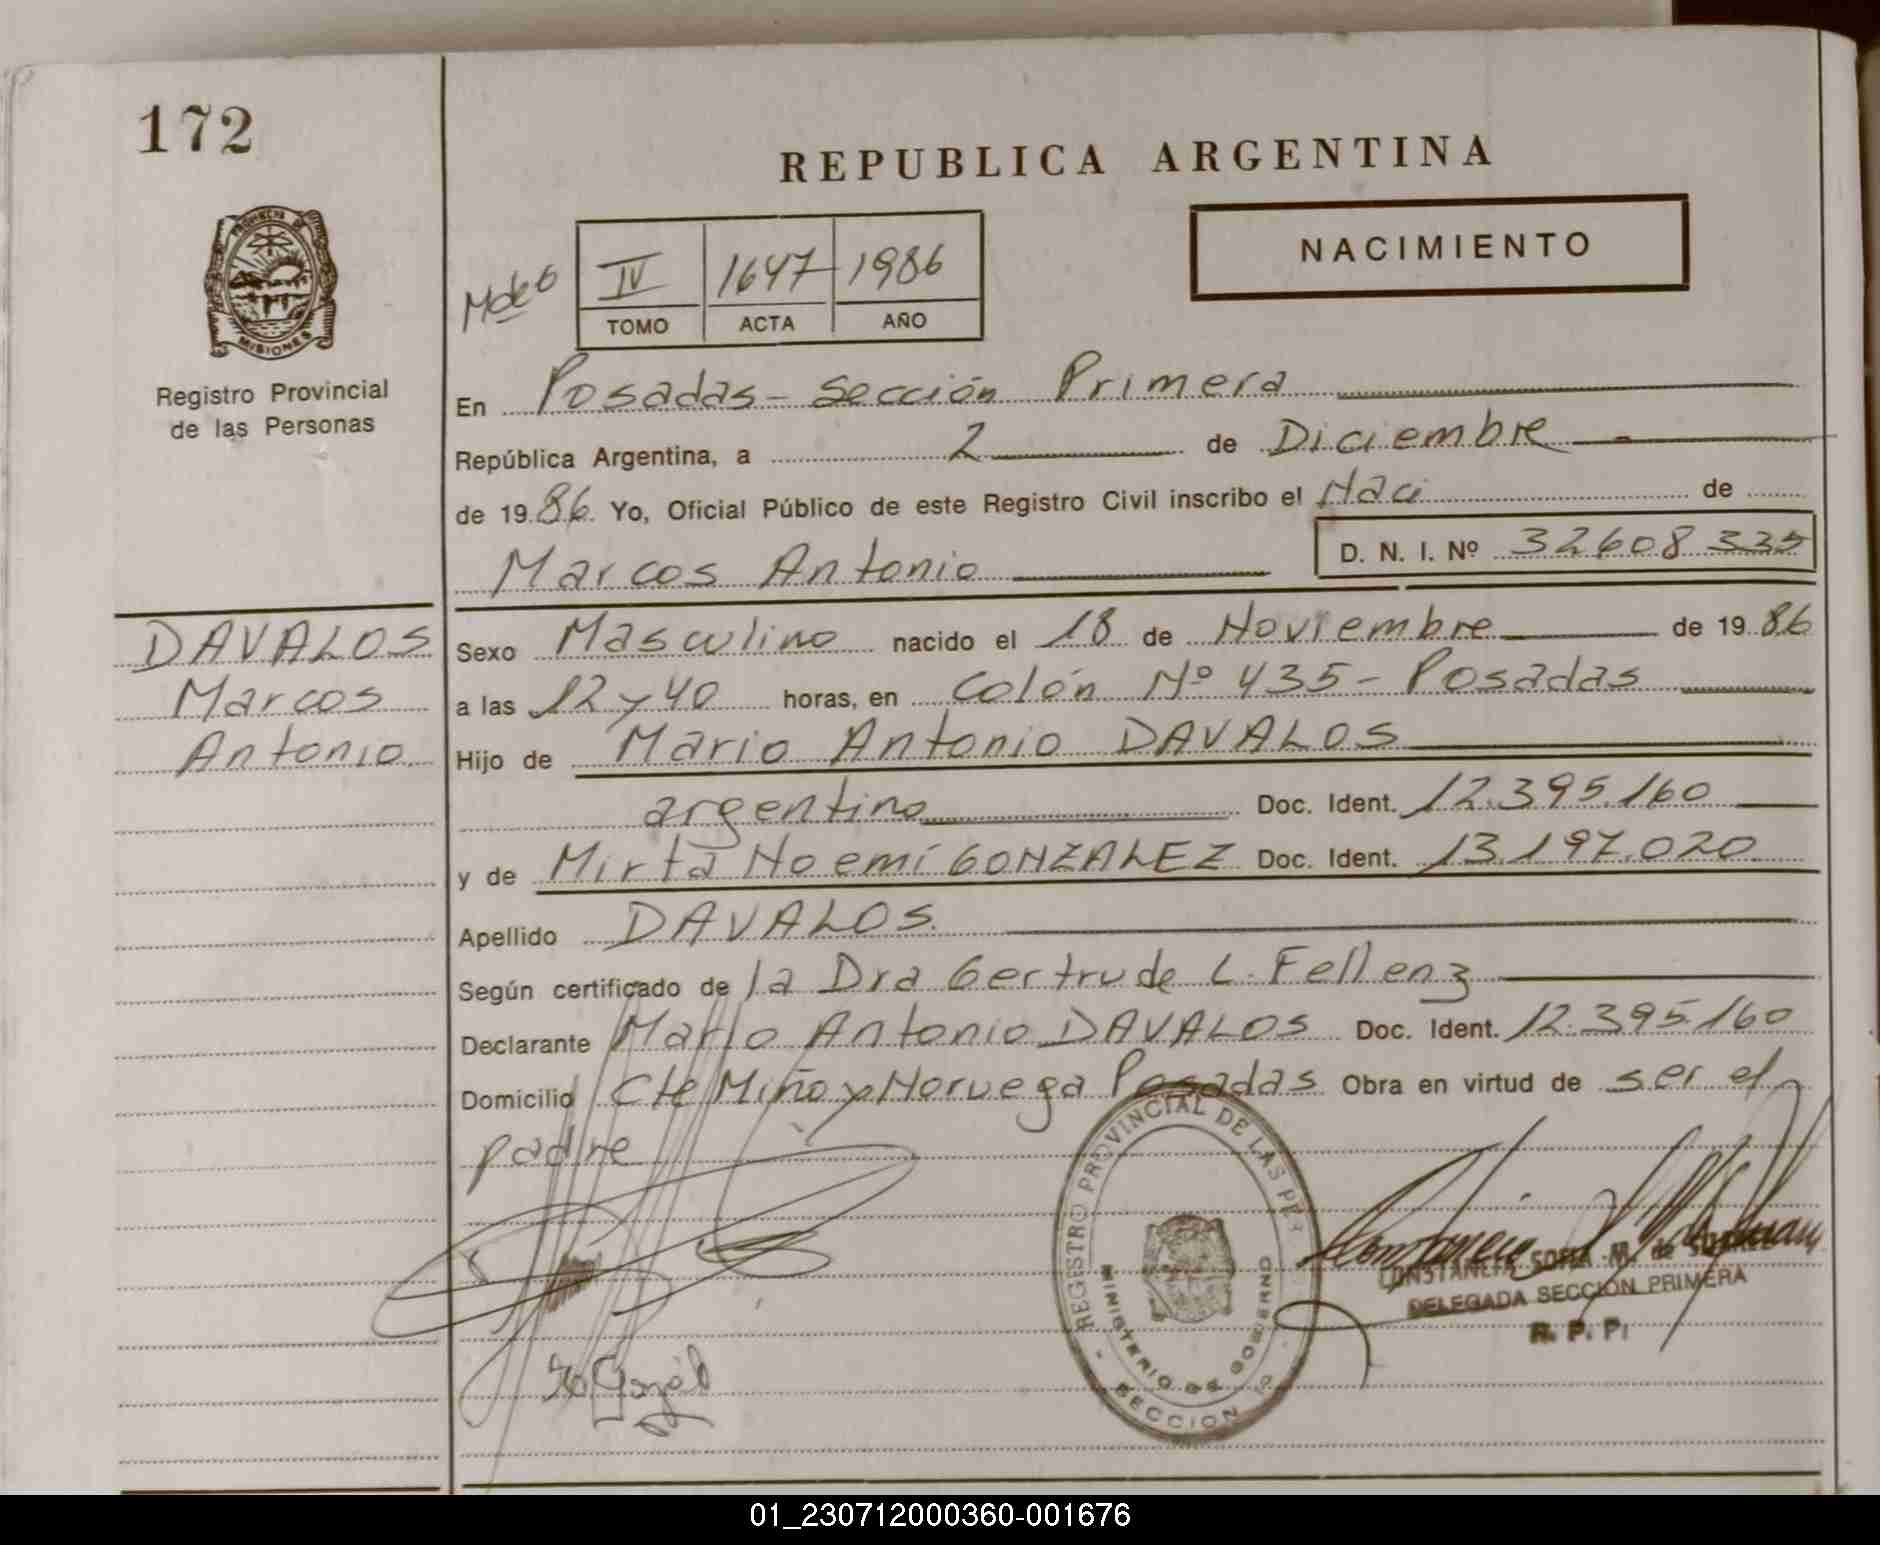 172
REPUBLICA ARGENTINA
PROVINCIA DE
MISIONES
Registro Provincial
de las Personas
NACIMIENTO
IV 1647 1986
TOMO ACTA AÑO
En Posadas - Sección Primera
República Argentina, a 2 de Diciembre
de 1986 Yo, Oficial Público de este Registro Civil inscribo el Naci de
Marcos Antonio D. N. I. Nº 32608335
DAVALOS
Marcos
Antonio
Sexo Masculino nacido el 18 de Noviembre de 1986
a las 12 y 40 horas, en Colón Nº 435 - Posadas
Hijo de Mario Antonio DAVALOS
argentino Doc. Ident. 12.395.160
y de Mirta Noemí GONZALEZ Doc. Ident. 13.197.020
Apellido DAVALOS.
Según certificado de la Dra Gertrude L. Fellenz
Declarante Mario Antonio DAVALOS Doc. Ident. 12.395.160
Domicilio Cte Miño y Noruega Posadas Obra en virtud de ser el
padre
REGISTRO PROVINCIAL DE LAS PER
MINISTERIO DE GOBIERNO
SECCION 1
CONSTANCIA SOFIA M. de
DELEGADA SECCIÓN PRIMERA
R. P. P.
01_230712000360-001676